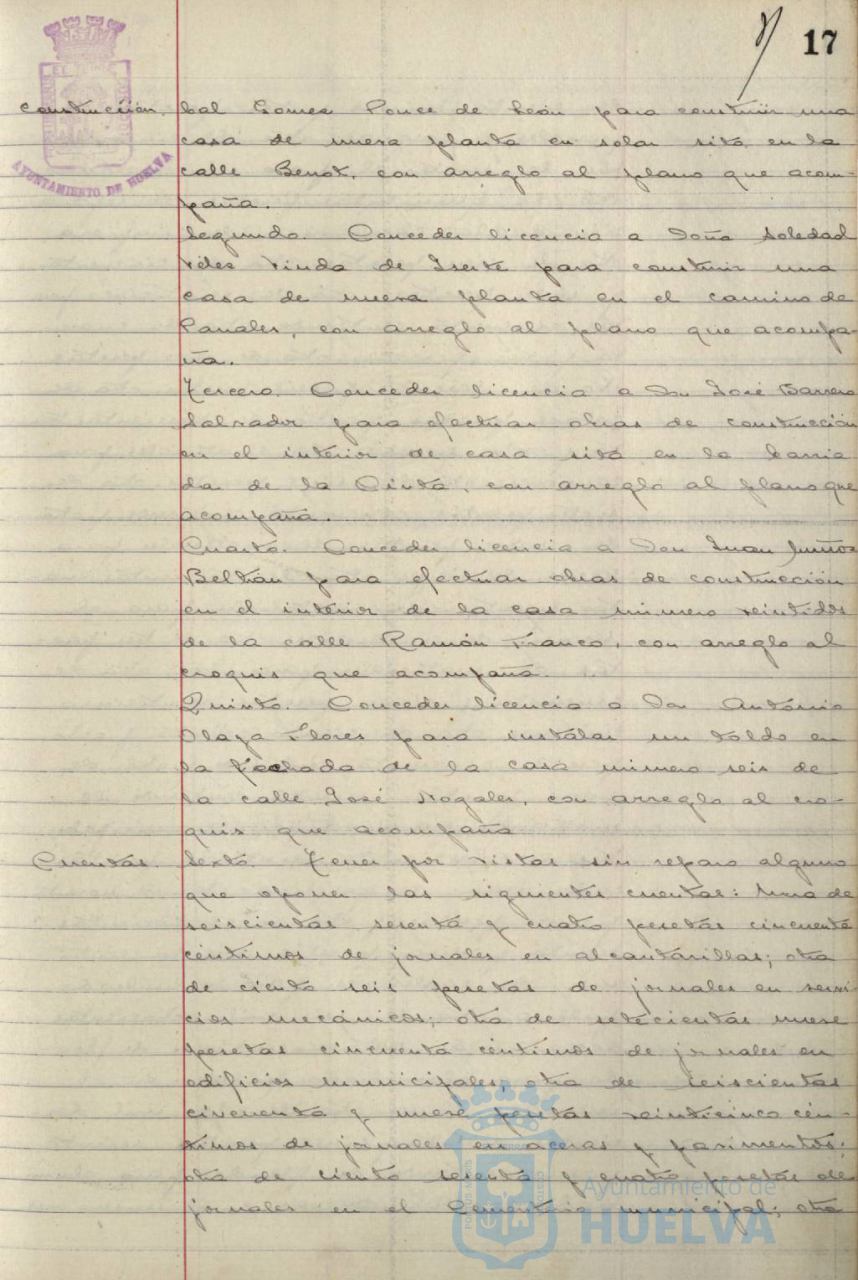 17
AYUNTAMIENTO DE HUELVA
Construcción. bal Gomez Ponce de León para construir una
casa de nueva planta en solar sito en la
calle Benot, con arreglo al plano que acom-
paña.
Segundo. Conceder licencia a Doña Soledad
Vides Viuda de Iserte para construir una
casa de nueva planta en el camino de
Canales, con arreglo al plano que acompa-
ña.
Tercero. Conceder licencia a Don José Barrero
Salvador para efectuar obras de construcción
en el interior de casa sita en la barria
da de la Cinta, con arreglo al plano que
acompaña.
Cuarto. Conceder licencia a Don Juan Muñoz
Beltrán para efectuar obras de construcción
en el interior de la casa número veintidos
de la calle Ramón Franco, con arreglo al
croquis que acompaña.
Quinto. Conceder licencia a Don António
Olaya Flores para instalar un toldo en
la fachada de la casa número seis de
la calle José Nogales, con arreglo al cro-
quis que acompaña
Cuentas. Sexto. Tener por vistas sin reparo alguno
que oponer las siguientes cuentas: Una de
seiscientas sesenta y cuatro pesetas cincuenta
céntimos de jornales en alcantarillas; otra
de ciento seis pesetas de jornales en servi
cios mecánicos; otra de setecientas nueve
pesetas cincuenta céntimos de jornales en
edificios municipales, otra de seiscientas
cincuenta y nueve pesetas veinticinco cén-
timos de jornales en aceras y pavimentos;
otra de ciento sesenta y cuatro pesetas de
jornales en el Cementerio municipal; otra
Ayuntamiento de
HUELVA